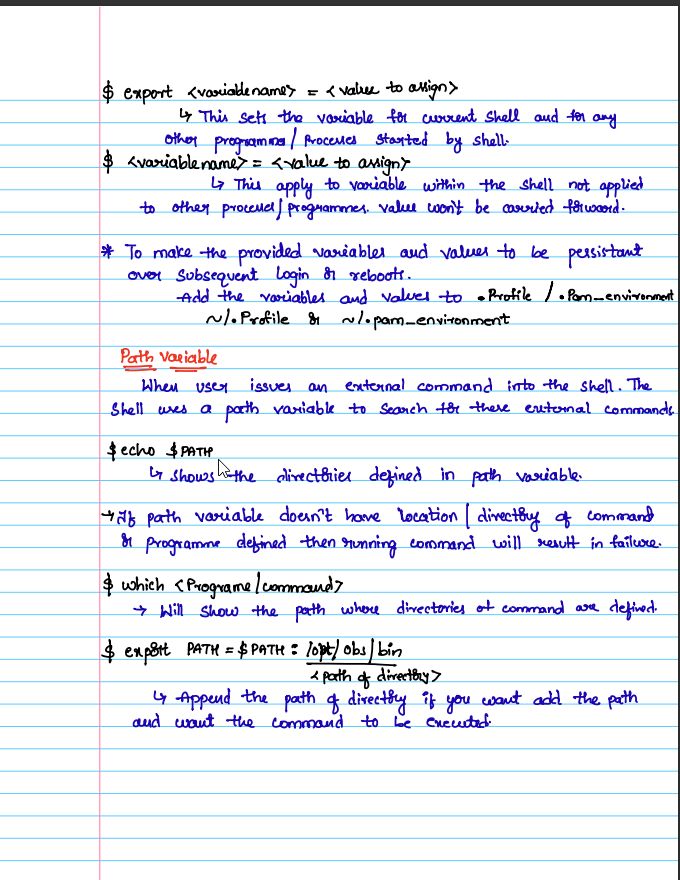 $ export <variable name> = < value to assign>
↳ This sets the variable for current shell and for any
other programms/ Processes started by shell.
$ <variable name> = <value to assign>
↳ This apply to variable within the shell not applied
to other processes/programmes. value won't be carried forward.
* To make the provided variables and values to be persistant
over subsequent login or reboots.
-Add the variables and values to .Profile / .Pam_environment
~/.Profile or ~/.pam_environment
Path Variable
When user issues an external command into the shell. The
Shell uses a path variable to search for these external commands
$ echo $PATH
↳ shows the directories defined in path variable.
→ If path variable doesn't have location / directory of command
or programme defined then running command will result in failure.
$ which <Programe/command>
→ Will show the path whose directories of command are defined.
$ export PATH = $PATH : /opt/obs/bin
<path of directory>
↳ Append the path of directory if you want add the path
and want the command to be executed.